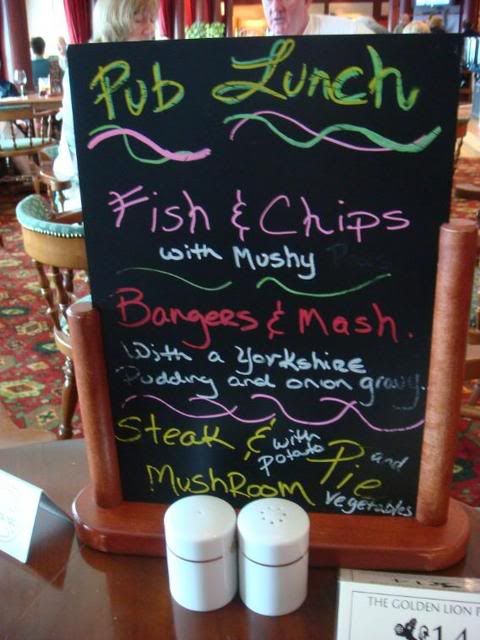 Pub Lunch
Fish & Chips
with Mushy Peas
Bangers & Mash.
With a Yorkshire
Pudding and onion gravy.
Steak & with potato and
MushRoom Pie vegetables
THE GOLDEN LION